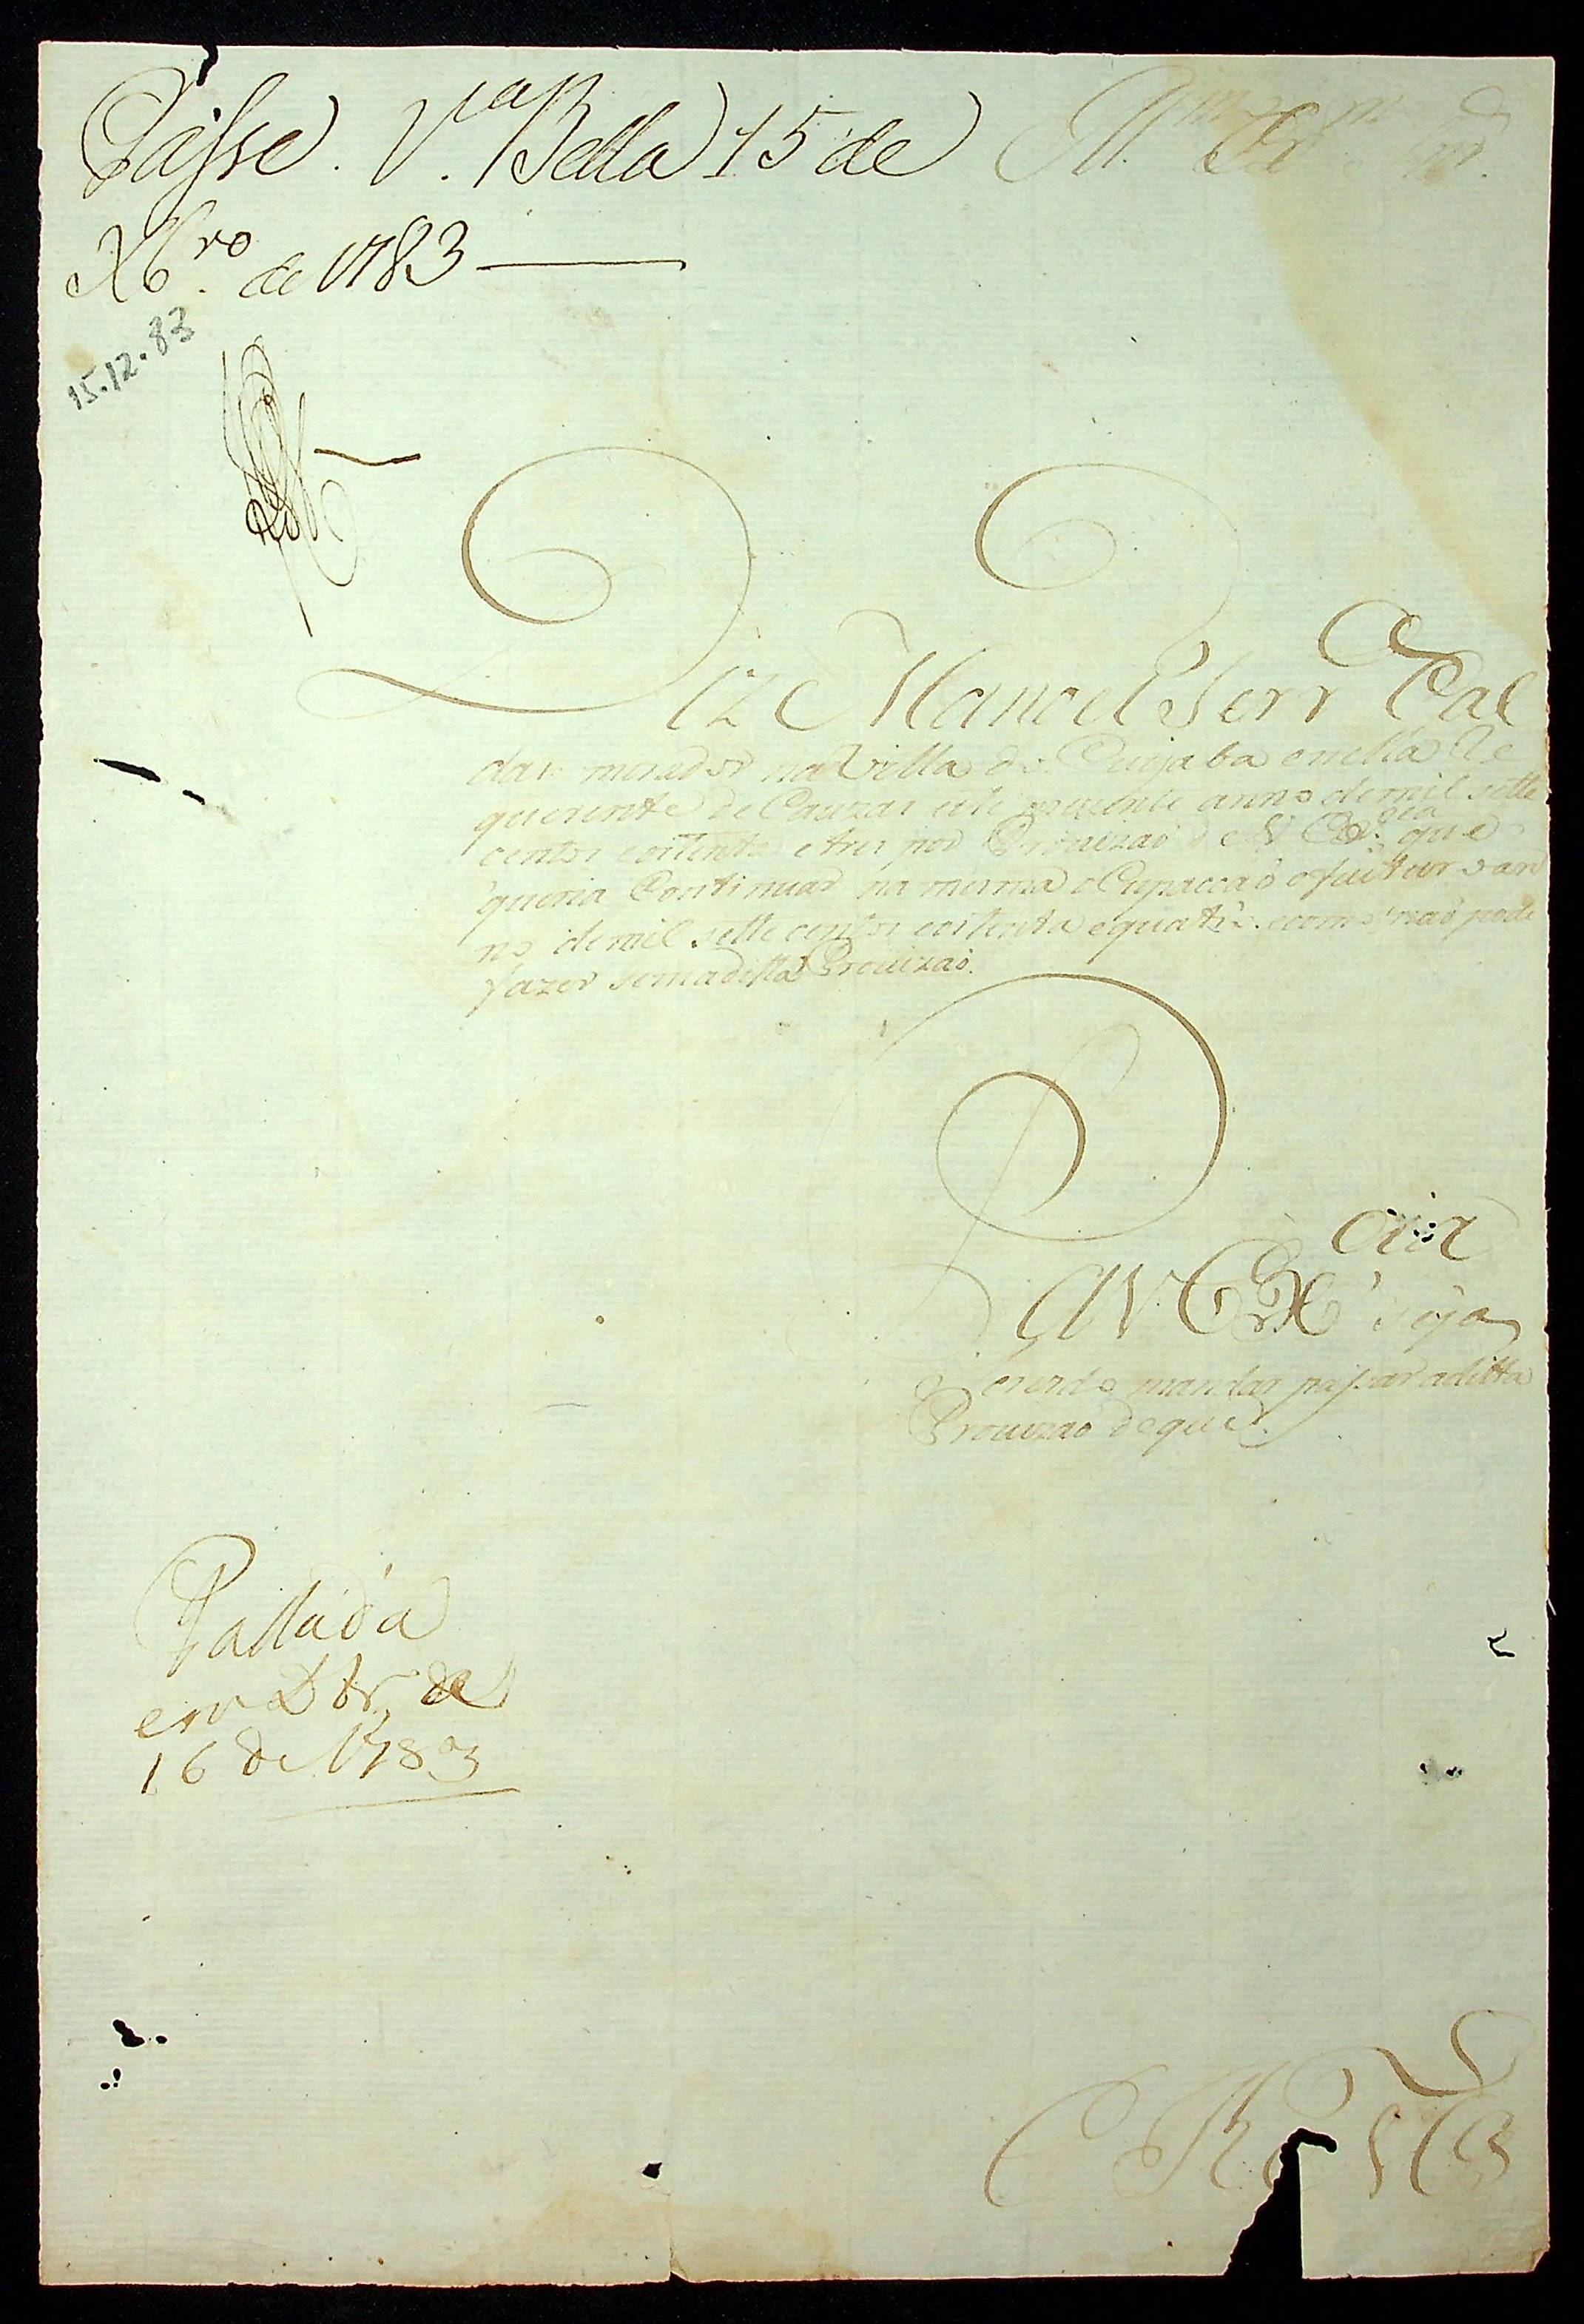 Passe. V.ª Bella 15 de
Xbro. de 1783
Ill.mo Ex.mo Snr.
15.12.83
Diz Manoel Ferr Cal
das morador na Villa do Cuyaba e nella Re
querente de Cauzas este prezente anno de mil sette
centos eoitenta e tres por Provizaõ de V. Ex.cia que
queria Continuar na mesma oCupaccaõ o fucturo an
no de mil sette centos eoitenta equatro. ecomo naõ pode
fazer sem adista Provizaõ.
P
A V. EX.cia seja
servido mandar passar aditta
Provizaõ deque.
Passada
em Dbr. de
16 de 1783
E R M.ce